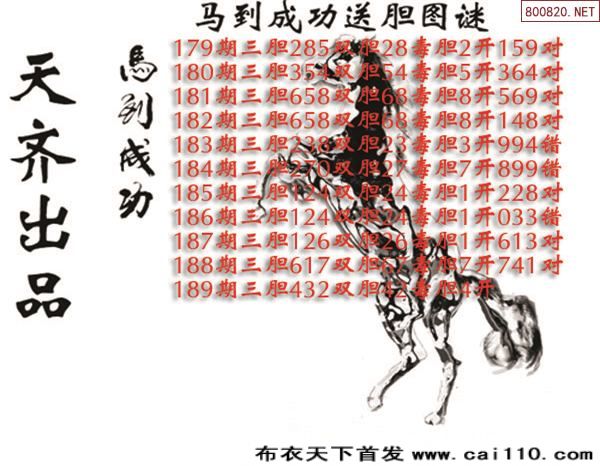 马到成功送胆图谜
800820.NET
天齐出品
馬到成功
179期三胆285双胆28毒胆2开159对
180期三胆354双胆54毒胆5开364对
181期三胆658双胆68毒胆8开569对
182期三胆658双胆68毒胆8开148对
183期三胆238双胆23毒胆3开994错
184期三胆270双胆27毒胆7开899错
185期三胆124双胆24毒胆1开228对
186期三胆124双胆24毒胆1开033错
187期三胆126双胆26毒胆1开613对
188期三胆617双胆67毒胆7开741对
189期三胆432双胆42毒胆4开
布衣天下首发 www.cai110.com